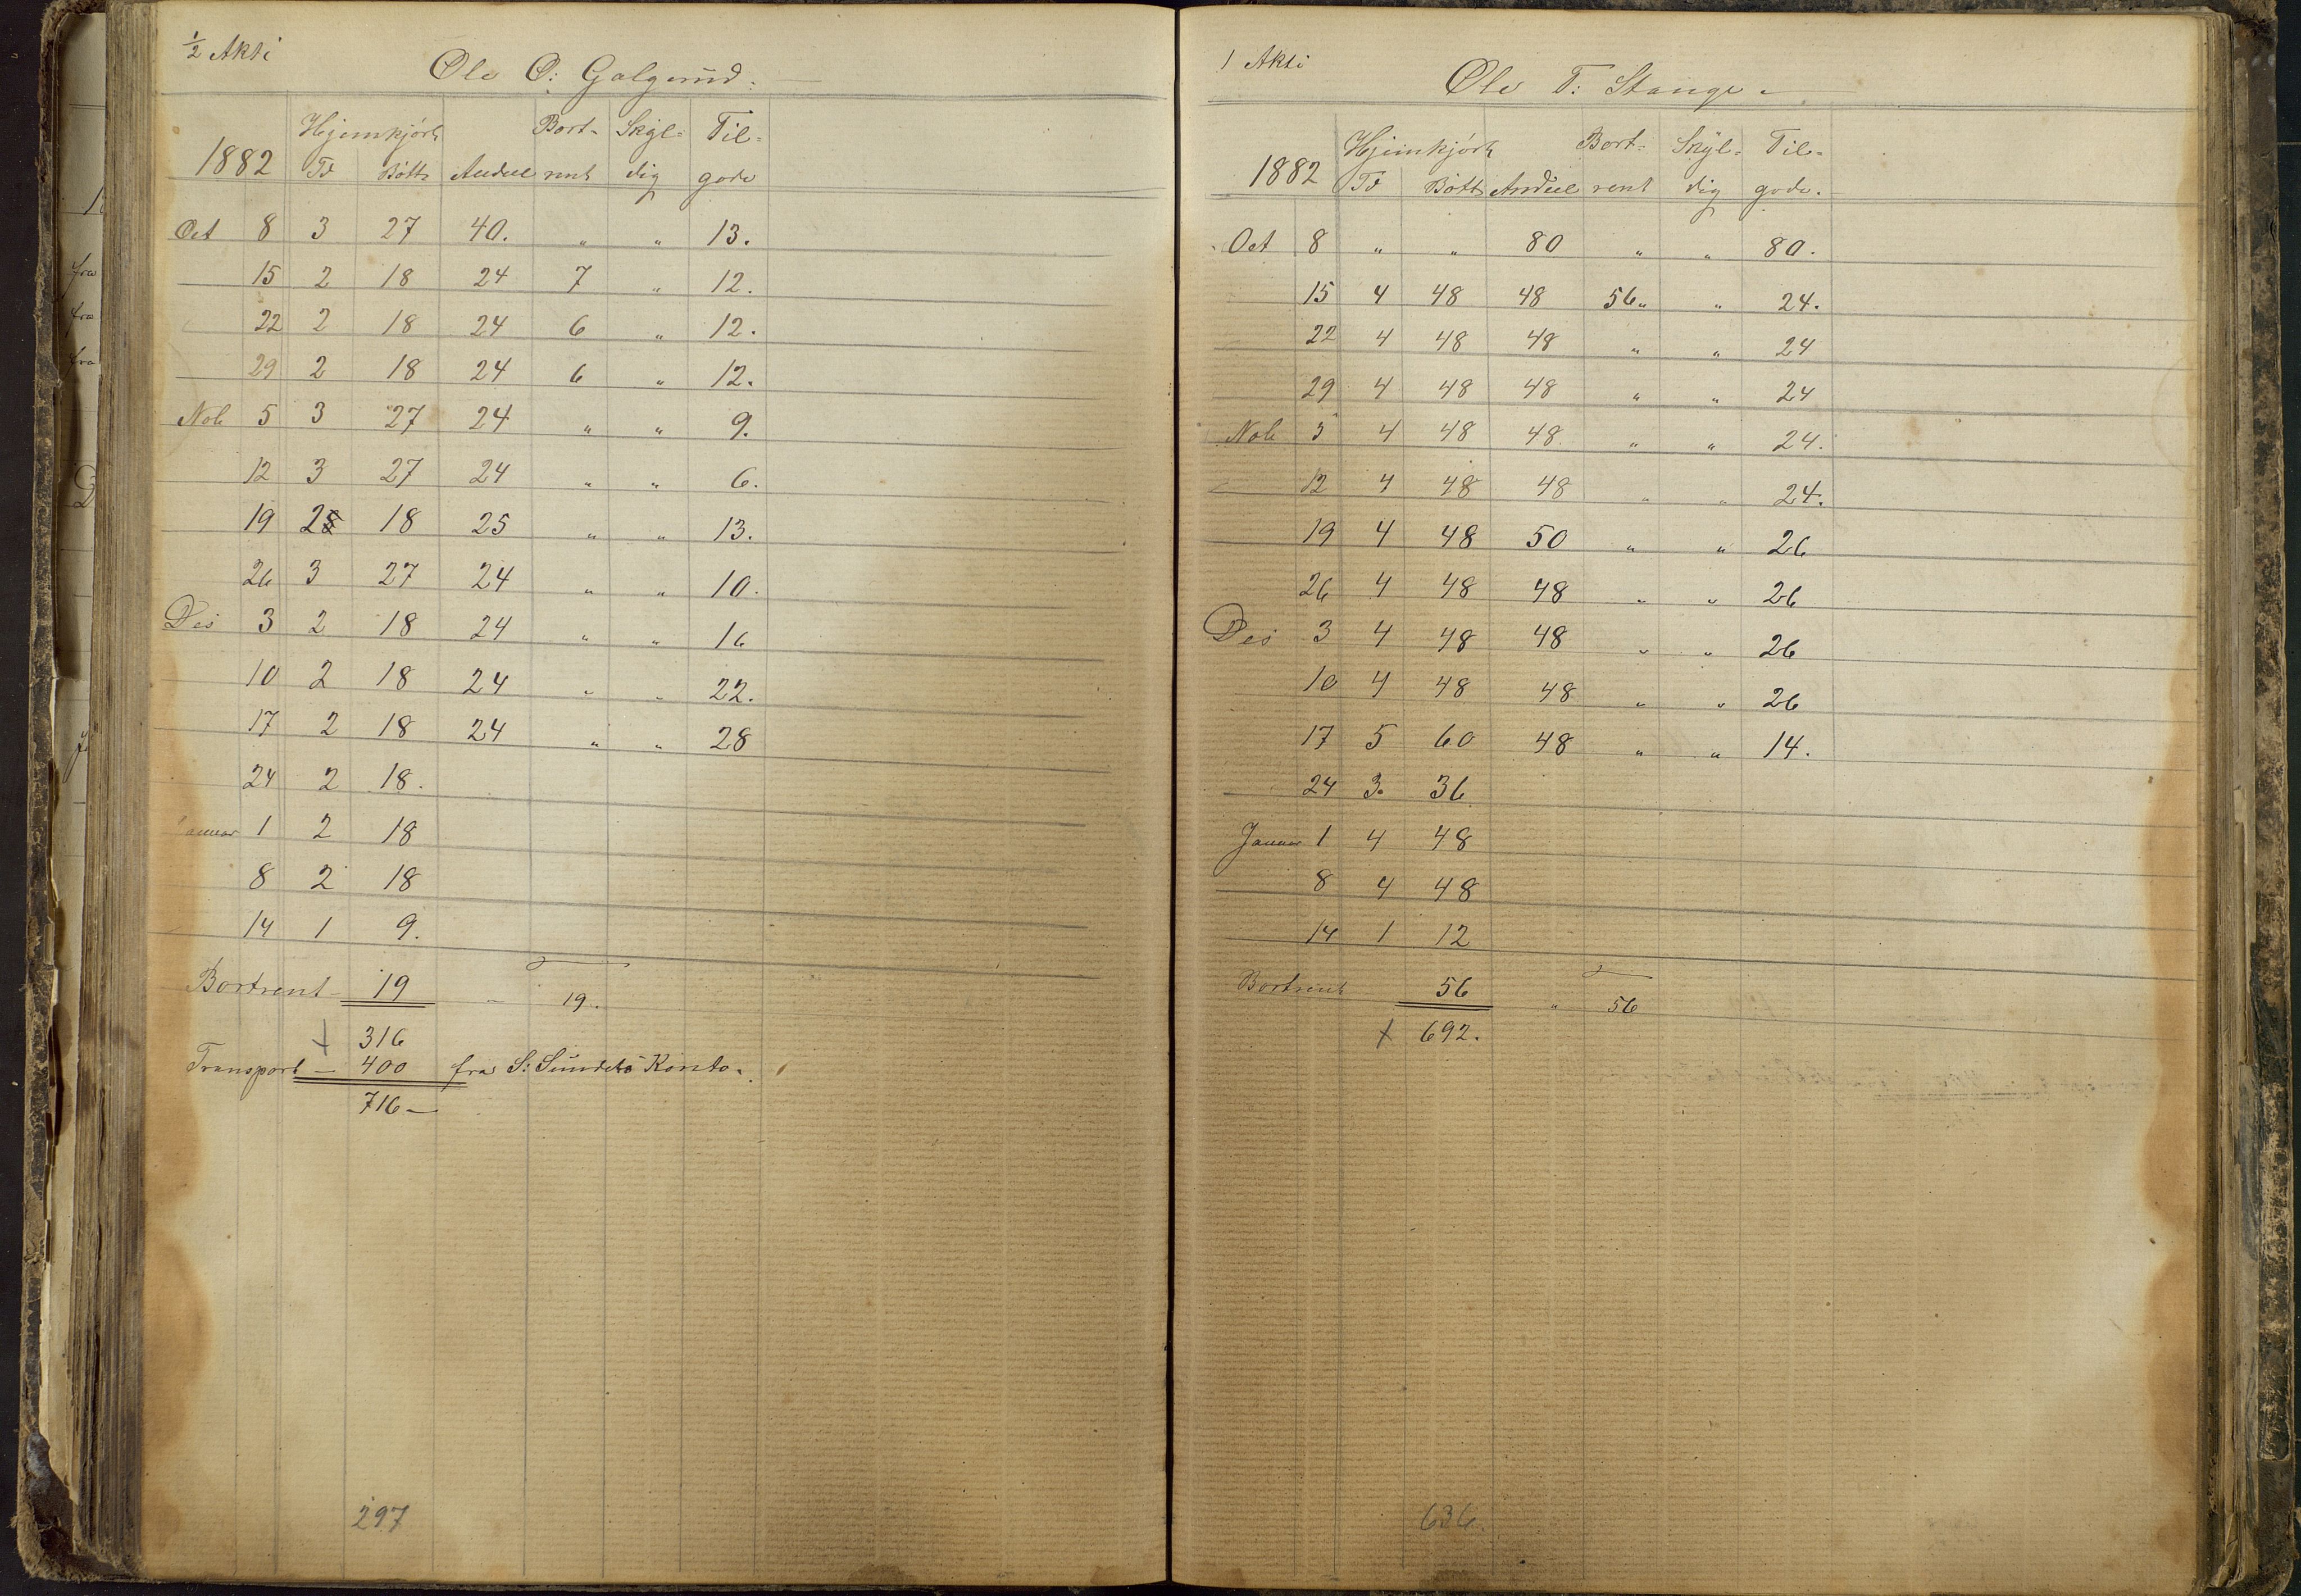 ½ Akti
Ole O: Galgerud.
Hjemkjørt Bort- Skyl- Til-
1882 Td Bøtt Andeel rent dig gode
Oct 8 3 27 40. " " 13.
15 2 18 24 7 " 12.
22 2 18 24 6 " 12.
29 2 18 24 6 " 12.
Nob 5 3 27 24 " " 9.
12 3 27 24 " " 6.
19 2 18 25 " " 13.
26 3 27 24 " " 10.
Des 3 2 18 24 " " 16
10 2 18 24 " " 22.
17 2 18 24 " " 28
24 2 18.
Januar 1 2 18
8 2 18
14 1 9.
Bortrent - 19 - 19.
+ 316
Transport - 400 fra S: Sündets Konto.
716 -
297
1 Akti
Ole T: Stange -
Hjemkjørt Bort- Skyl- Til-
1882 Td Bøtt Andeel rent dig gode.
Oct 8 " " 80 " " 80.
15 4 48 48 56 " " 24.
22 4 48 48 " " 24
29 4 48 48 " " 24
Nob 5 4 48 48 " " 24.
12 4 48 48 " " 24.
19 4 48 50 " " 26
26 4 48 48 " " 26
Des 3 4 48 48 " " 26
10 4 48 48 " " 26
17 5 60 48 " " 14.
24 3. 36
Januar 1 4 48
8 4 48
14 1 12
Bortrent 56 " 56
+ 692.
636.